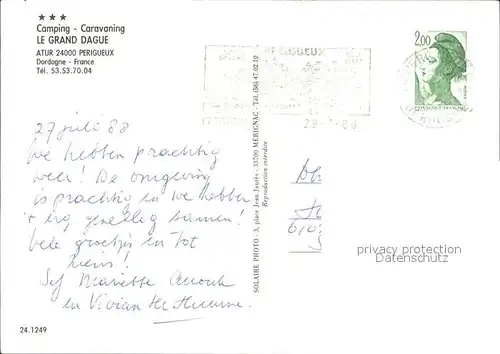 ★★★
Camping - Caravaning
LE GRAND DAGUE
ATUR 24000 PERIGUEUX
Dordogne - France
Tél. 53.53.70.04
PERIGUEUX
2,00
27 juli 88
We hebben prachtig
weer! De omgeving
is prachtig en we hebben
't erg gezellig samen!
Vele groetjes en tot
ziens!
Mariette Anouk
en Vivian
SOLAIRE PHOTO - 3, place Jean-Jaurès - 33700 MERIGNAC - Tél. (56) 47.02.10
Reproduction interdite
privacy protection
Datenschutz
24.1249